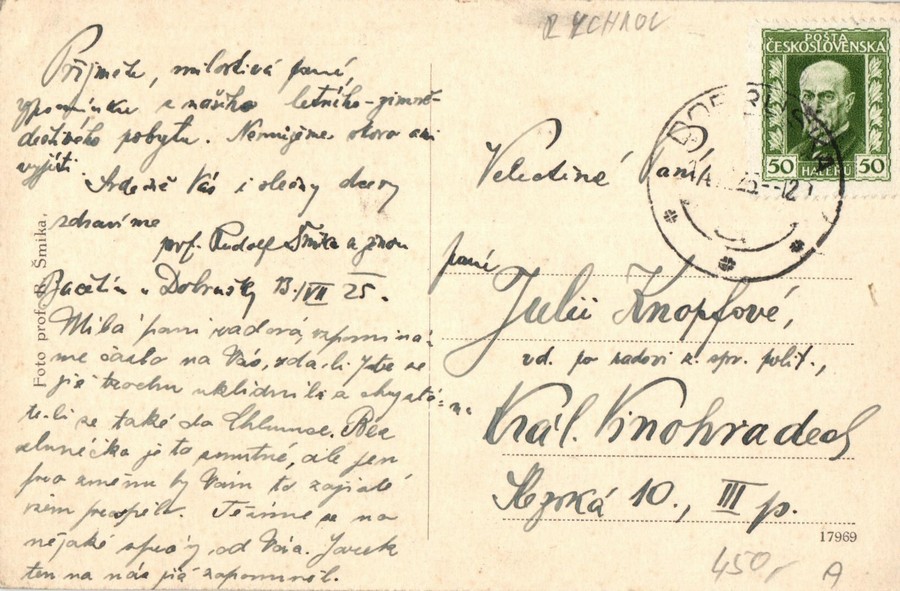 RYCHNOV
Přijměte, milostivá paní,
vzpomínku z našeho letního-zimně-
deštivého pobytu. Nemůžeme skoro ani
vyjíti.
Srdečně Vás i slečny dcery
zdravíme
prof. Rudolf Šmika a ženou
Bačetín u Dobrušky 13./VII 25.
Milá paní radová, vzpomíná-
me často na Vás, zda-li jste se
již trochu uklidnili a chystá-
te-li se také do Chlumce. Bez
sluníčka je to smutné, ale jen
pro změnu by Vám to zajisté
prospělo. Těšíme se na
nějaké zprávy od Vás.
ten na nás již zapomněl.
Foto prof. R. Šmika.
POŠTA
ČESKOSLOVENSKÁ
50 HALÉŘŮ 50
DOBRUŠKA
Velectěná Paní
paní
Julii Knopfové,
vd. po radovi z. spr. polit.,
na
Král. Vinohradech
Slezská 10., III p.
17969
450,-
A